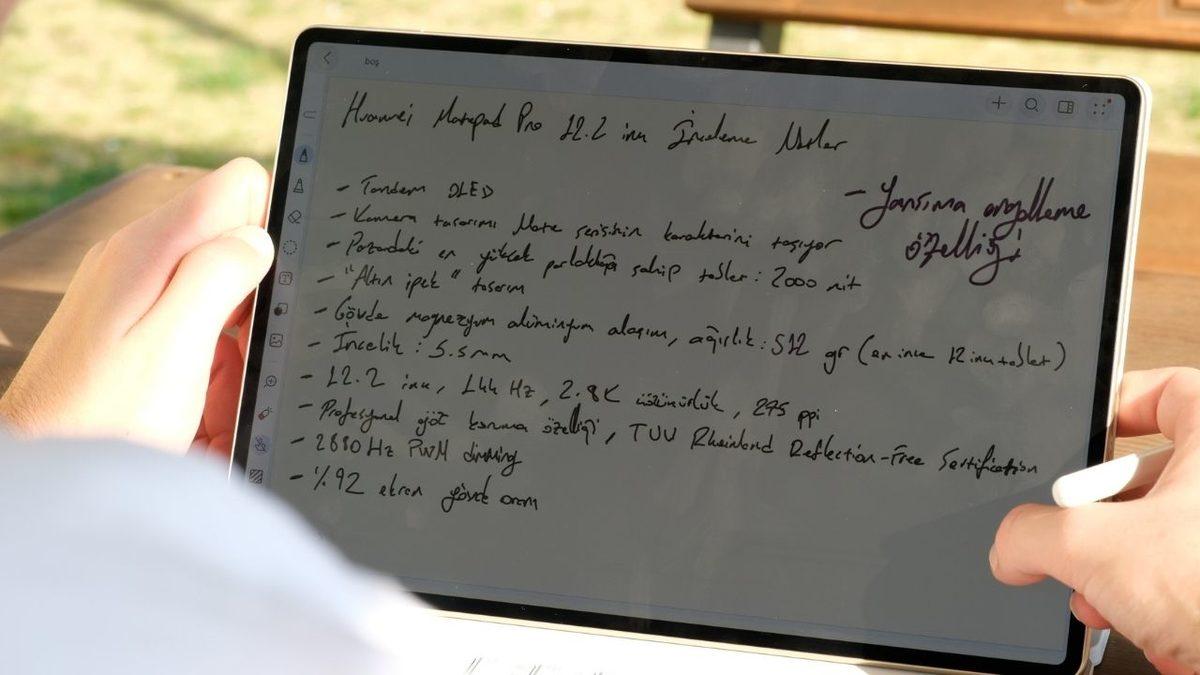 boş
Huawei Matepad Pro 12.2 inc İnceleme Notlar
- Tandem OLED
- Kamera tasarımı Mate serisinin karakterini taşıyor
- Pazardaki en yüksek parlaklığa sahip tablet: 2000 nit
- "Altın ipek" tasarım
- Gövde magnezyum alüminyum alaşım, ağırlık: 512 gr (en ince 12 inc tablet)
- İncelik: 5.5mm
- 12.2 inc, 144 Hz, 2.8K çözünürlük, 275 ppi
- Profesyonel göz koruma özelliği, TUV Rheinland Reflection-Free Sertification
- 2880 Hz PWM dimming
- %92 ekran gövde oranı
- Yansıma engelleme
özelliği